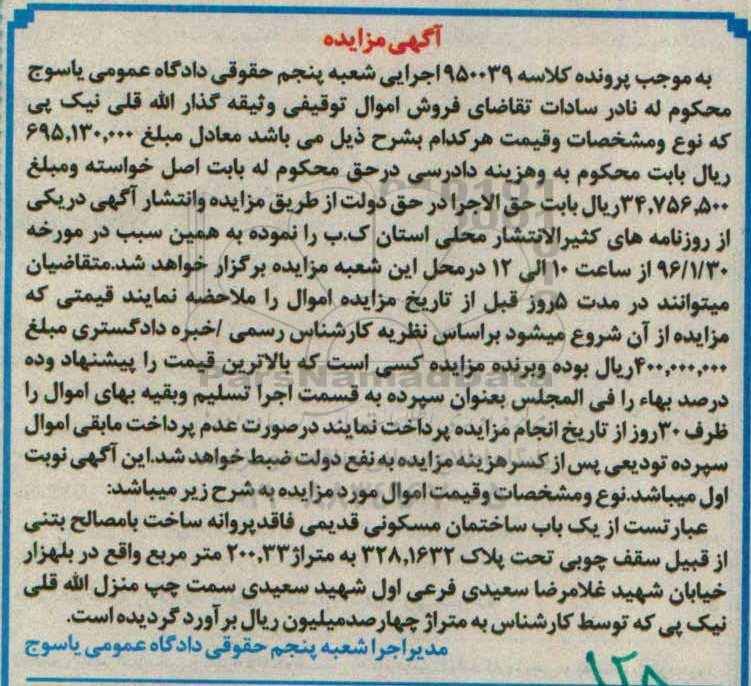 آگهی مزایده
به موجب پرونده کلاسه ۹۵۰۰۳۹ اجرایی شعبه پنجم حقوقی دادگاه عمومی یاسوج
محکوم له نادر سادات تقاضای فروش اموال توقیفی وثیقه گذار الله قلی نیک پی
که نوع ومشخصات وقیمت هرکدام بشرح ذیل می باشد معادل مبلغ ۶۹۵,۱۳۰,۰۰۰
ریال بابت محکوم به وهزینه دادرسی درحق محکوم له بابت اصل خواسته ومبلغ
۳۴,۷۵۶,۵۰۰ریال بابت حق الاجرا در حق دولت از طریق مزایده وانتشار آگهی دریکی
از روزنامه های کثیرالانتشار محلی استان ک.ب را نموده به همین سبب در مورخه
۹۶/۱/۳۰ از ساعت ۱۰ الی ۱۲ درمحل این شعبه مزایده برگزار خواهد شد.متقاضیان
میتوانند در مدت ۵روز قبل از تاریخ مزایده اموال را ملاحضه نمایند قیمتی که
مزایده از آن شروع میشود براساس نظریه کارشناس رسمی /خبره دادگستری مبلغ
۴۰۰,۰۰۰,۰۰۰ریال بوده وبرنده مزایده کسی است که بالاترین قیمت را پیشنهاد وده
درصد بهاء را فی المجلس بعنوان سپرده به قسمت اجرا تسلیم وبقیه بهای اموال را
ظرف ۳۰روز از تاریخ انجام مزایده پرداخت نمایند درصورت عدم پرداخت مابقی اموال
سپرده تودیعی پس از کسرهزینه مزایده به نفع دولت ضبط خواهد شد.این آگهی نوبت
اول میباشد.نوع ومشخصات وقیمت اموال مورد مزایده به شرح زیر میباشد:
عبارتست از یک باب ساختمان مسکونی قدیمی فاقدپروانه ساخت بامصالح بتنی
از قبیل سقف چوبی تحت پلاک ۳۲۸,۱۶۳۲ به متراژ۲۰۰,۳۳ متر مربع واقع در بلهزار
خیابان شهید غلامرضا سعیدی فرعی اول شهید سعیدی سمت چپ منزل الله قلی
نیک پی که توسط کارشناس به متراژ چهارصدمیلیون ریال برآورد گردیده است.
مدیراجرا شعبه پنجم حقوقی دادگاه عمومی یاسوج
۱۲۸
ParsNamadData